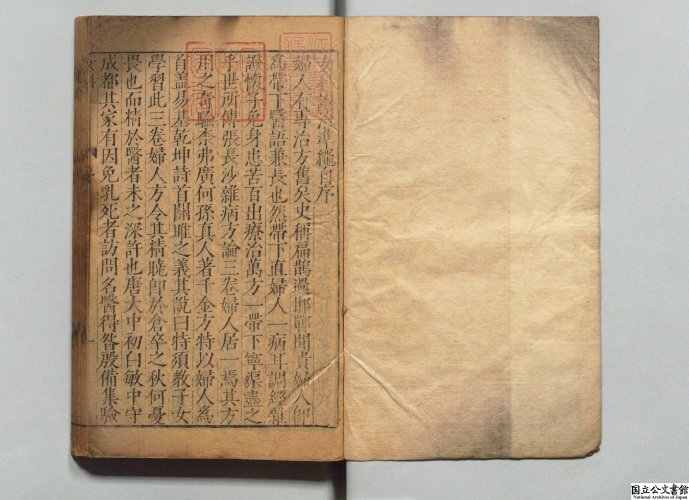 女科證治準繩自序
婦人有專治方舊矣史稱扁鵲過邯鄲聞貴婦人即
為帶下醫語兼長也然帶下直婦人一病耳調經雜
證懷子免身患苦百出療治萬方一帶下寧渠盡之
乎世所傳張長沙雜病方論三卷婦人居一焉其方
用之奇驗奈弗廣何孫真人著千金方特以婦人為
首盖易基乾坤詩首關雎之義其說曰特須教子女
學習此三卷婦人方令其精曉即於倉卒之秋何憂
畏也而精於醫者未之深許也唐大中初白敏中守
成都其家有因免乳死者訪問名醫得昝殷備集驗
女科
序
国立公文書館
National Archives of Japan